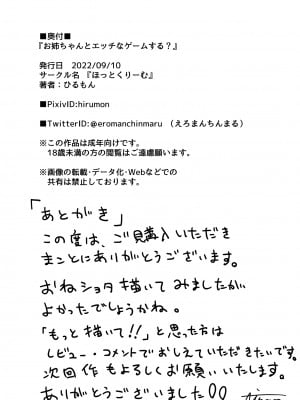 ■奥付■
『お姉ちゃんとエッチなゲームする？』
発行日　2022/09/10
サークル名　『ほっとくりーむ』
著者：ひるもん
■PixivID:hirumon
■TwitterID:@eromanchinmaru　（えろまんちんまる）
※この作品は成年向けです。
18歳未満の方の閲覧はご遠慮願います。
※画像の転載・データ化・Webなどでの
共有は禁止しております。
「あとがき」
この度は、ご購入いただき
まことにありがとうございます。
おねショタ描いてみましたが
よかったでしょうかね。
「もっと描いて!!」と思った方は
レビュー・コメントでおしえていただきたいです。
次回作もよろしくお願いいたします。
ありがとうございました